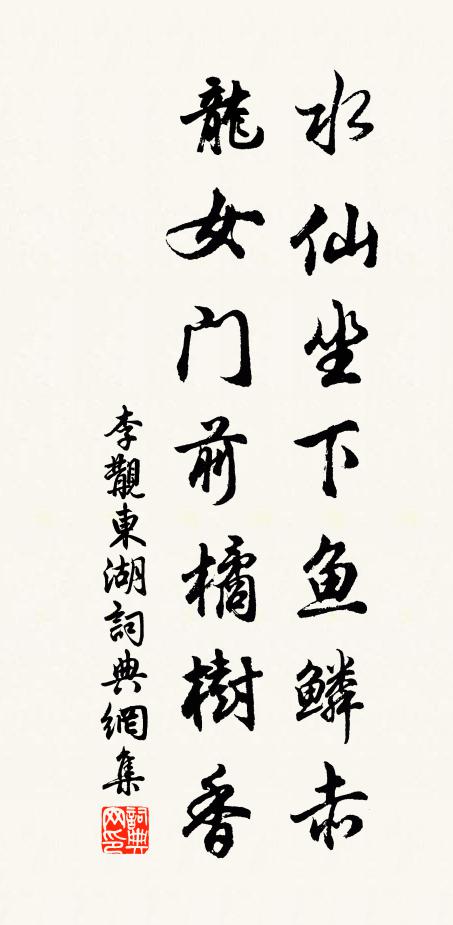 水仙坐下鱼鳞赤
龍女门前橘樹香
李觀東湖詞典網集
詞典网印